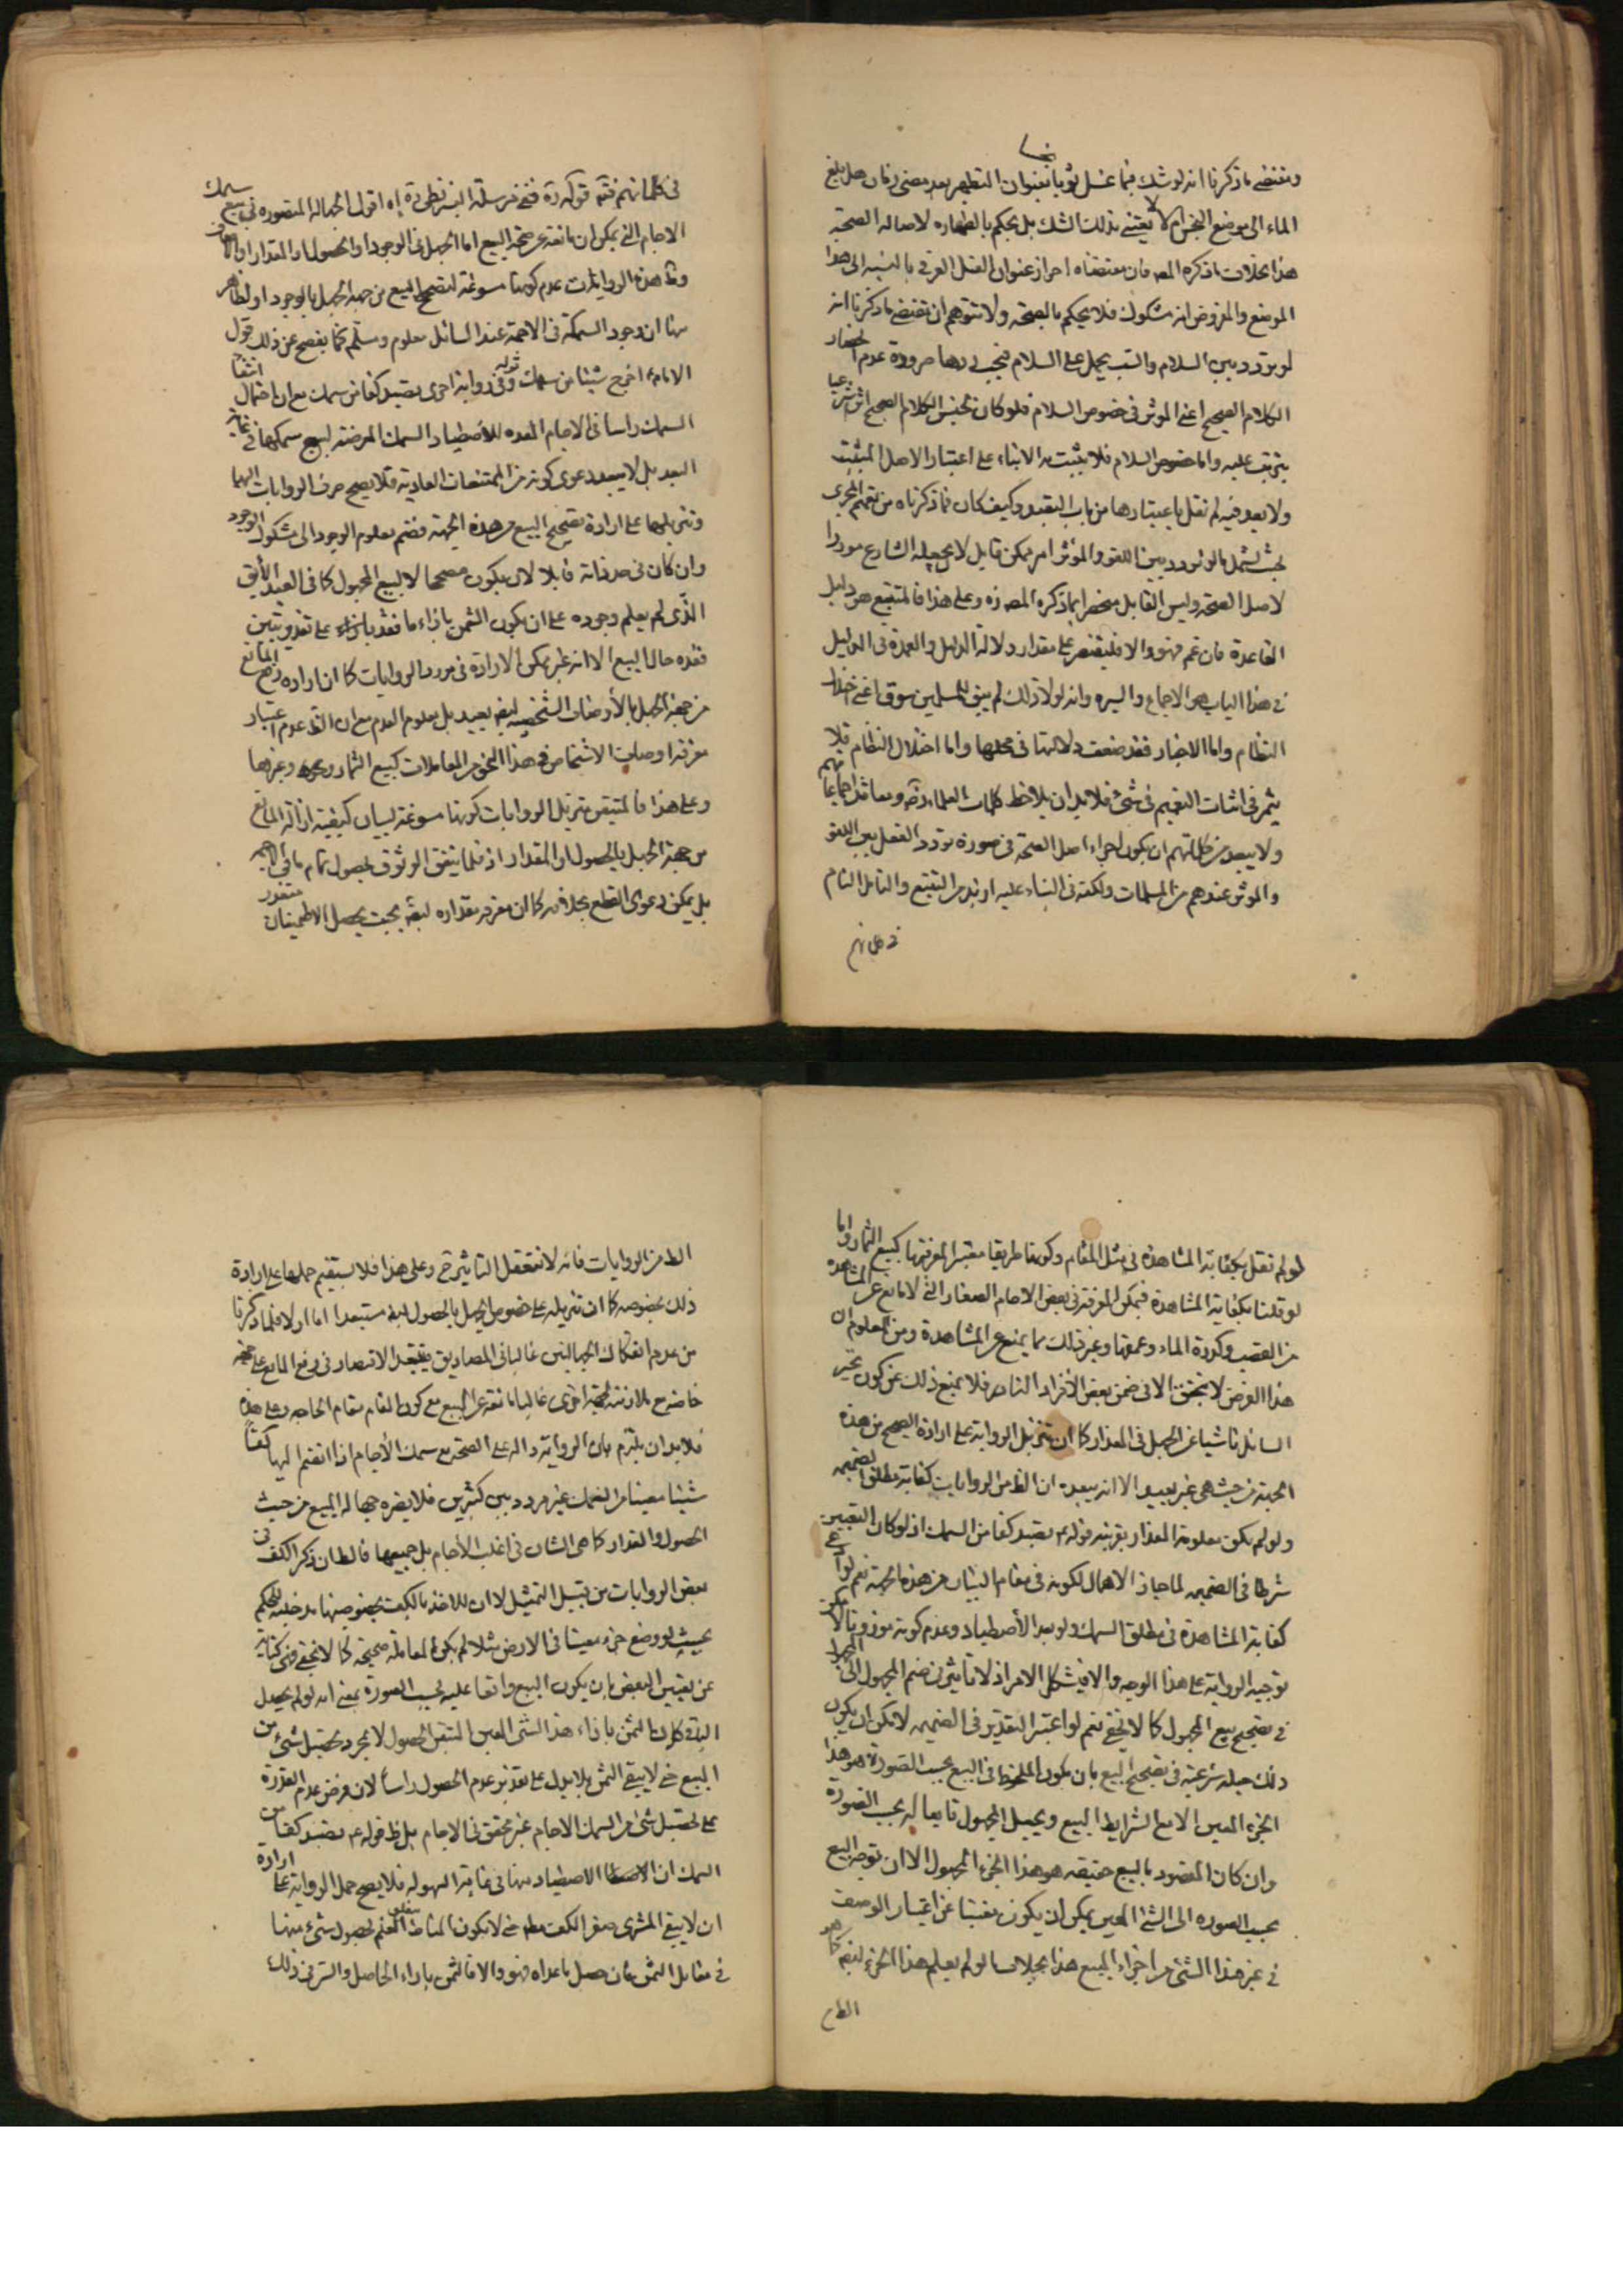 ومقتضى ما ذكرنا انه لو شك فيما غسل ثوبا نجسا بعنوان التطهير بعد مضى زمان هل بلغ
الماء الى موضع النجس ام لا لا يعتنى بذلك الشك بل يحكم بالطهاره لاصالة الصحة
هذا بخلاف ما ذكره المصـ فان مقتضاه احراز عنوان الغسل العرفى بالنسبه الى هذا
الموضع والمفروض انه مشكوك فلا يحكم بالصحه ولا تتوهم ان مقتضى ما ذكرنا انه
لو تردد بين السلام والسب يحمل على السلام فيجب ردها ضرورة عدم
الكلام الصحيح اعنى الموثر فى خصوص السلام فلو كان لجنس الكلام الصحيح اثر شرعيا
يترتب عليه واما خصوص السلام فلا يثبت به الا بناء على اعتبار الاصل المثبت
ولا بعد فيه لم نقل باعتبارها من باب التعبد وكيف كان فما ذكرناه من تعميم المجرى
بحيث يشمل ما لو تردد بين اللغو والموثر امر ممكن قابل لان يجعله الشارع موردا
لاصل الصحه وليس القابل منحصرا بما ذكره المصـ ره وعلى هذا فالمتبع هو دليل
القاعدة فان عم فهو والا فليقتصر على مقدار دلالة الدليل والعمدة فى الدليل
فى هذا الباب هو الاجماع والسيره وانه لولا ذلك لم يبق للمسلمين سوق اعنى اختلال
النظام واما الاخبار فقد ضعف دلالتها فى محلها واما اختلال النظام فلا
يثمر فى اثبات التعميم فى شئ فلا بد ان يلاحظ كلمات العلماء ره ومعاقد اجماعاتهم
ولا يبعد من كلماتهم ان يكون اجراء اصل الصحة فى صورة تردد الفعل بين اللغو
والموثر عندهم من المسلمات ولكنه فى البناء عليه لا بد من التتبع والتامل التام
فى كلماتهم
فى كلماتهم فتم قوله ره ففى مرسلة البزنطى ره اه اقول الجهالة المتصوره فى بيع سمك
الاجام التى يمكن ان مانعة عن صحة البيع اما الجهل فى الوجود او الحصول او المقدار او الاوصاف
وظ هذه الروايات عدم كونها مسوغة لتصحيح البيع من جهة الجهل بالوجود اذ الظاهر
منها ان وجود السمكة فى الاجمة عند السائل معلوم ومسلم كما يفصح عن ذلك قول
الامام اخرج شيئا من سمك وفى رواية اخرى يصيد كفا من سمك مع ان احتمال انتفاء
السمك راسا فى الاجام المعده للاصطياد السمك المعرضة لبيع سمكها فى غاية
البعد بل لا يبعد دعوى كونه من الممتنعات العادية فلا يصح صرف الروايات اليها
وتنزيلها على ارادة تصحيح البيع من هذه الجهة فضم معلوم الوجود الى مشكوك الوجود
وان كان فى حد ذاته قابلا لان يكون مصححا لا لبيع المجهول كما فى العبد الآبق
الذى لم يعلم وجوده على ان يكون الثمن بازاء ما فقد بازاء على تقدير تبين
فقده حال البيع الا انه غير ممكن الارادة فى مورد الروايات كما ان ارادة رفع المانع
من جهة الجهل بالأوصاف الشخصيه ايضا بعيد بل معلوم العدم مع ان الظ عدم اعتبار
معرفة اوصاف الاشخاص فى هذا النحو من المعاملات كبيع الثمار ونحوه وغيرها
وعلى هذا فالمتيقن تنزيل الروايات كونها مسوغة لبيان كيفية ازالة المانع
من جهة الجهل بالحصول او المقدار اذ قلما يتفق الوثوق بحصول تمام ما فى الاجمه
بل يمكن دعوى القطع بخلافه كما ان معرفة مقداره ايضا بحيث يحصل الاطمينان متعذر
لو لم نقل بكفاية المشاهدة فى مثل المقام وكونها طريقا معتبرا لمعرفتها كبيع الثمار واما
لو قلنا بكفاية المشاهدة فيمكن المعرفة فى بعض الاجام الصغار التى لا مانع عن المشاهده
من القصب وكدرة الماء وعمقها وغير ذلك مما يمنع عن المشاهدة ومن المعلوم ان
هذا الفرض لا يتحقق الا فى ضمن بعض الأفراد النادره فلا يمنع ذلك عن كون تحير
السائل ناشيا عن الجهل فى المقدار كما ان تنزيل الرواية على ارادة الصحيح من هذه
الجهة من حيث هى غير بعيد الا انه يبعده ان الظ من الروايات كفاية مطلق الضميمه
ولو لم يكن معلومة المقدار بقرينة قوله ع يصيد كفا من السمك اذ لو كان التعيين
شرطا فى الضميمه لما جاز الاهمال لكونه فى مقام البيان من هذه الجهة نعم لو ادعى
كفاية المشاهدة فى مطلق السمك ولو بعد الأصطياد وعدم كونه موزونا لامكن
توجيه الرواية على هذا الوجه والا فيشكل الامر اذ لا تاثير فى ضم المجهول الى المجهول
فى تصحيح بيع المجهول كما لا يخفى نعم لو اعتبر التقدير فى الضميمه لامكن ان يكون
ذلك حيلة شرعية فى تصحيح البيع بان يكون الملحوظ فى البيع بحسب الصورة هو هذا
الجزء المعين الجامع لشرايط البيع ويجعل المجهول تابعا له بحسب الصورة
وان كان المقصود بالبيع حقيقه هو هذا الجزء المجهول الا ان توجه البيع
بحسب الصوره الى الشئ المعين يمكن ان يكون مغنيا عن اعتبار الوصف
فى غير هذا الشئ من اجزاء المبيع هذا بخلاف ما لو لم يعلم هذا الجزء ايضا كما هو
الظ من
الظ من الروايات فانه لا نتعقل التاثير ح وعلى هذا فلا يستقيم حملها على ارادة
ذلك بخصوصه كما ان تنزيله على خصوص الجهل بالحصول ايضا مستبعدا اما اولا فلما ذكرنا
من عدم انفكاك الجهالتين غالبا فى المصاديق فيبعد الاقتصار فى رفع المانع على جهة
خاصة مع ملازمته لجهة اخرى غالبا مانعة عن البيع مع كون المقام مقام الحاجه وعلى هذا
فلا بد ان يلتزم بان الرواية داله على الصحة بيع سمك الأجام اذا انضم اليها كفا
شيئا معينا من السمك غير مردد بين كثيرين فلا يضره جهالة المبيع من حيث
الحصول والمقدار كما هى الشان فى اغلب الأجام بل جميعها فالظ ان ذكر الكف فى
بعض الروايات من قبيل التمثيل لا ان للاخذ بالكف بخصوصها مدخلية للحكم
بحيث لو وضع جزء معينا فى الارض مثلا لم يكن المعاملة صحيحة كما لا يخفى فهى كناية
عن تعيين البعض بان يكون البيع واقعا عليه بحسب الصورة بمعنى انه لو لم يحصل
الباقى كان الثمن بازاء هذا الشئ المعين المتيقن الحصول لا مجرد تحصيل شئ من
المبيع حتى لا يبقى الثمن بلا بدل على تقدير عدم الحصول راسا لان فرض عدم القدرة
على تحصيل شئ من السمك الاجام غير محقق فى الاجام بل ظ قوله ع يصيد كفا من
السمك ان الاصطياد منها فى غاية السهوله فلا يصح حمل الرواية على ارادة
ان لا يبقى المشترى صفر الكف حتى لا يكون المناط العلم بحصول شئ منها
فى مقابل الثمن فان حصل ما عداه فهو والا فالثمن بازاء الحاصل والسر فى ذلك